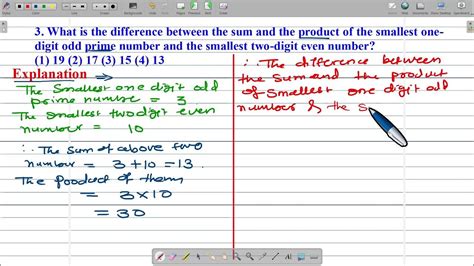 3. What is the difference between the sum and the product of the smallest one-
digit odd prime number and the smallest two-digit even number?
(1) 19 (2) 17 (3) 15 (4) 13
Explanation
The Smallest one digit odd
prime number = 3
The Smallest two digit even
number = 10
∴ The Sum of above two
number = 3 + 10 = 13.
The Poduct of them
= 3 × 10
= 30
∴ The difference between
the Sum and the product
of Smallest one digit odd
number & the S